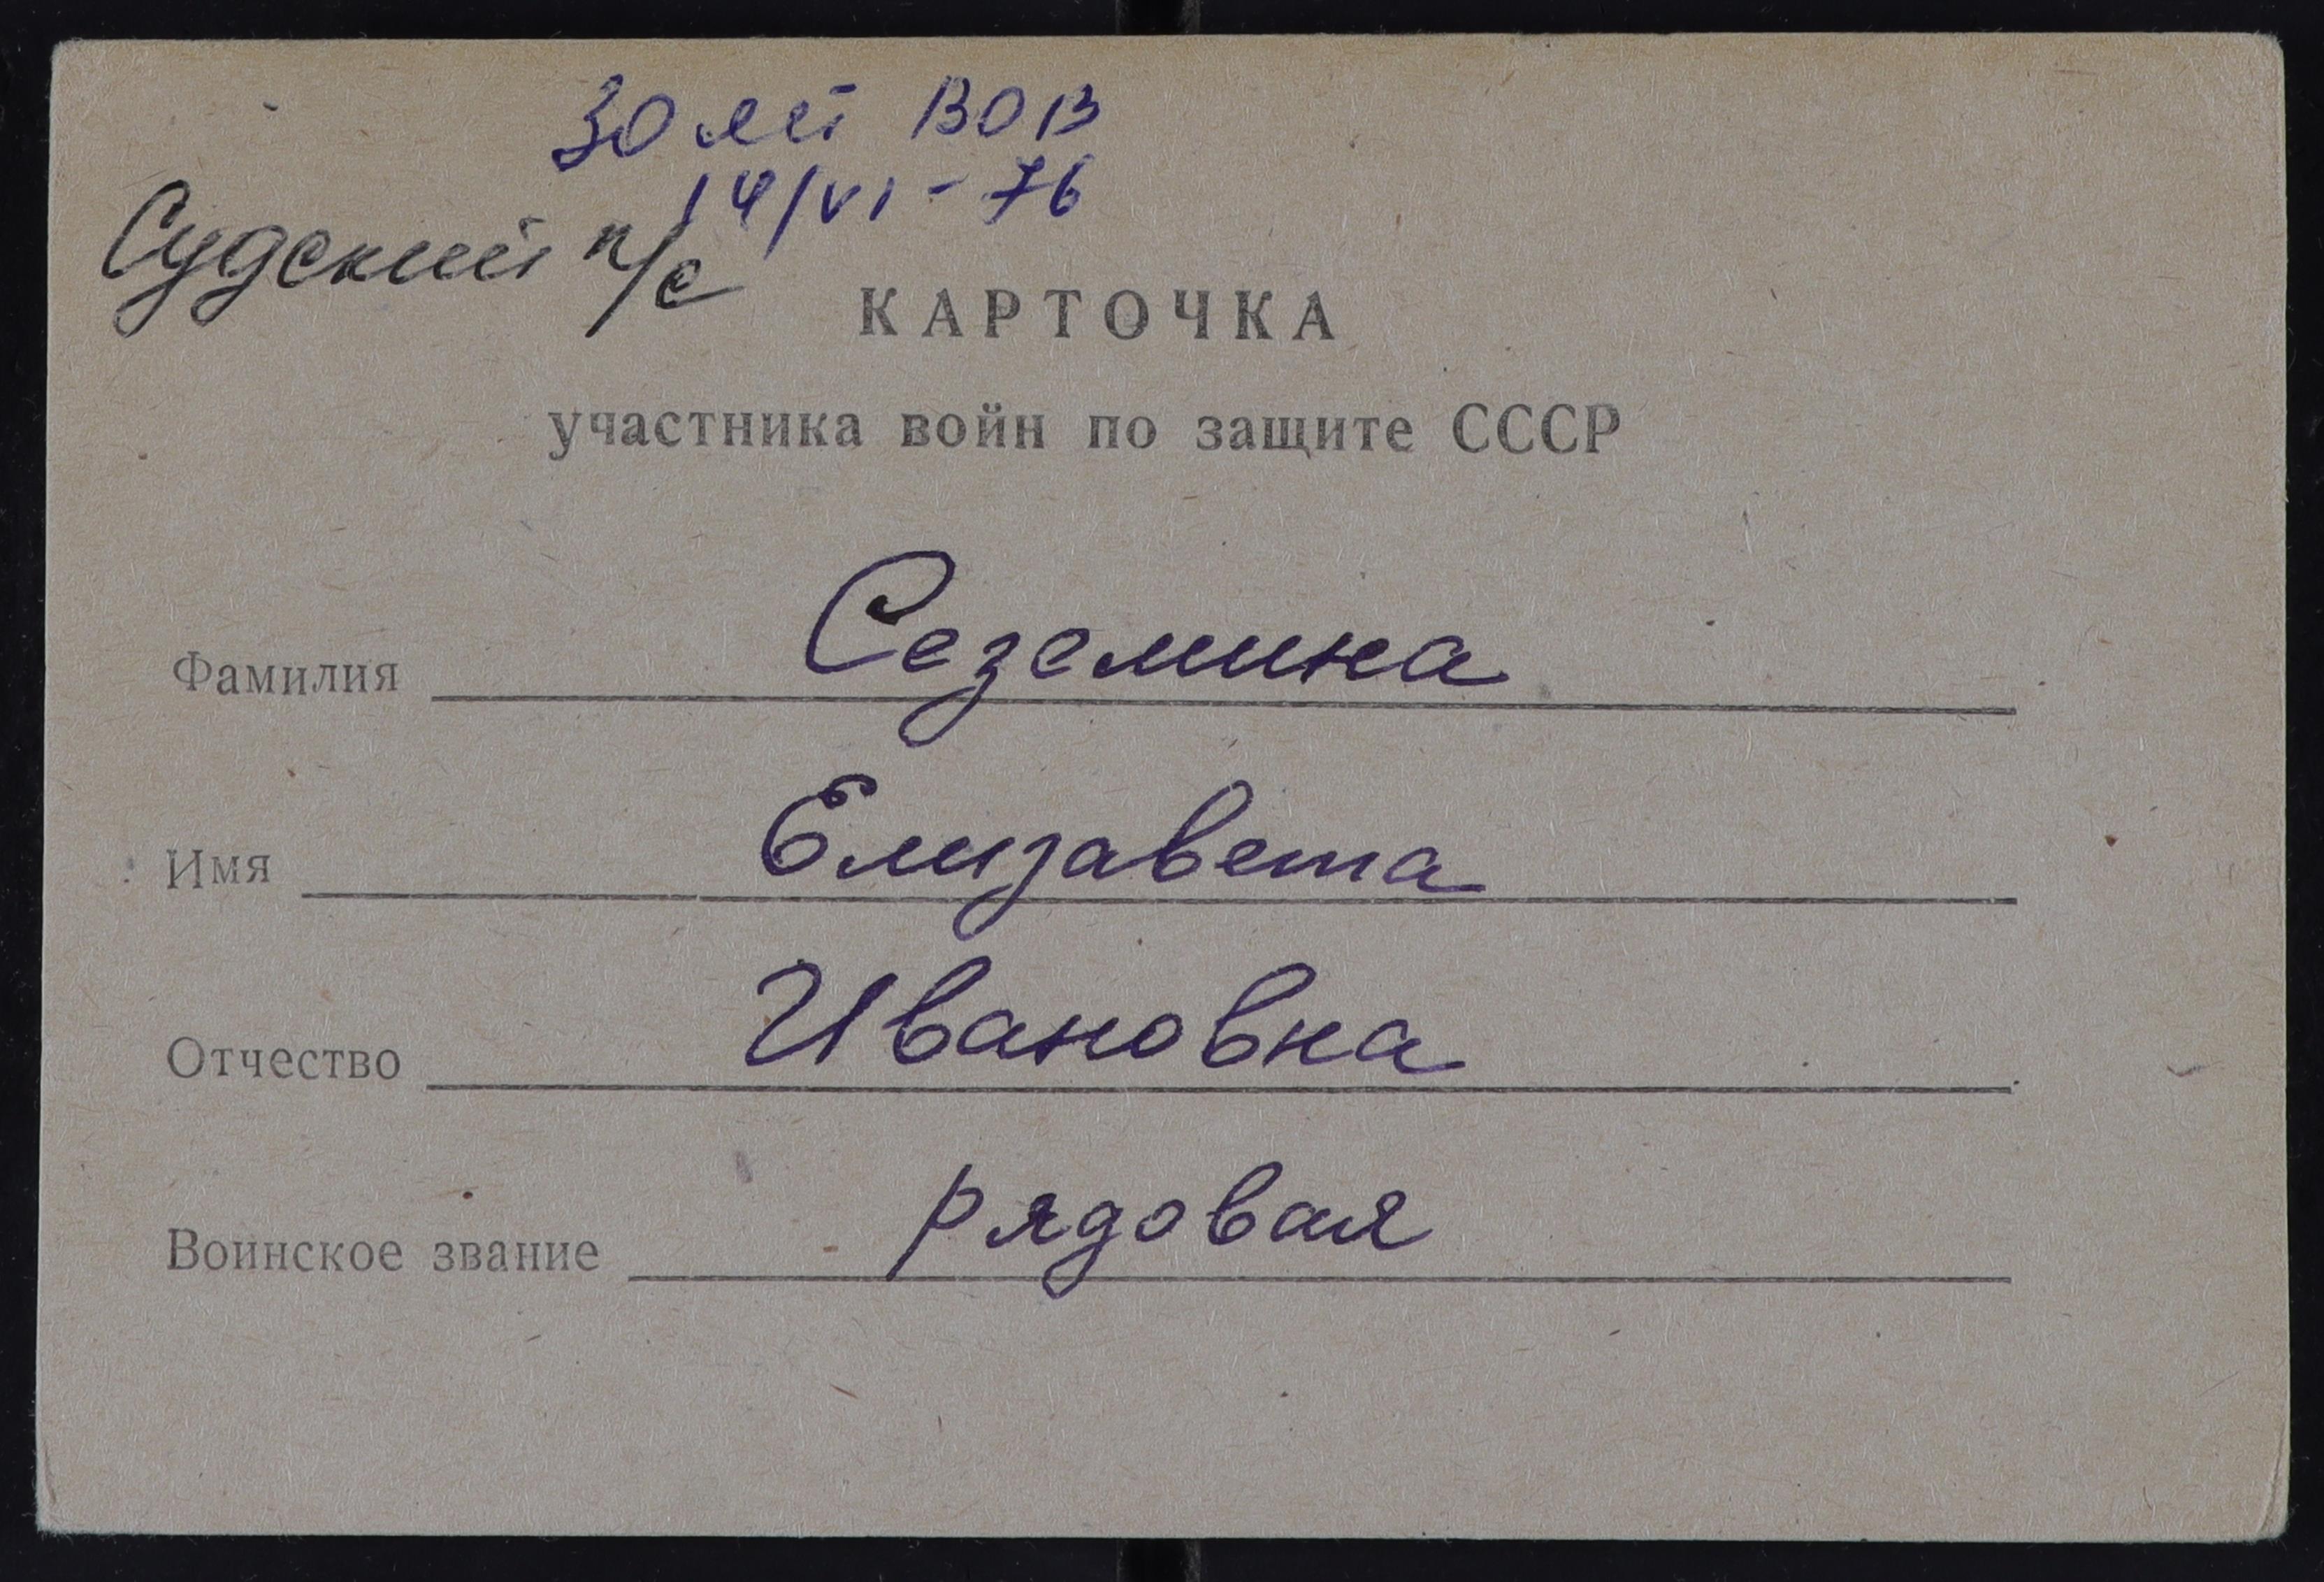 30 лет ВОВ
14/VI - 76
Судский п/с
КАРТОЧКА
участника войн по защите СССР
Фамилия Сеземина
Имя Елизавета
Отчество Ивановна
Воинское звание рядовая